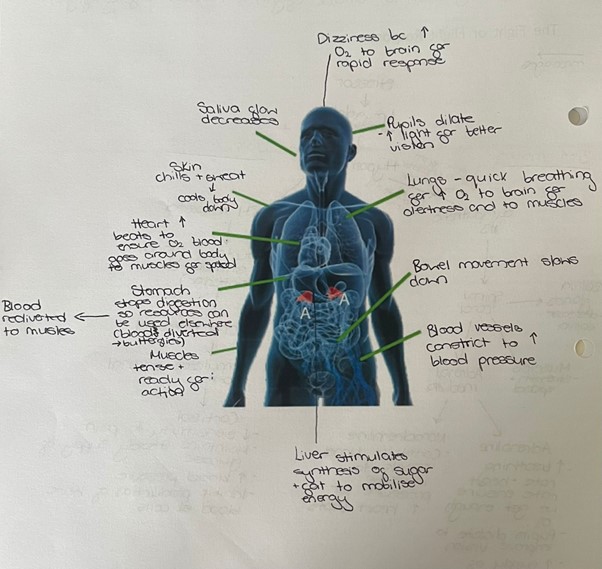 Dizziness bc ↑
O2 to brain for
rapid response
Saliva flow
decreases
Pupils dilate
-↑ light for better
vision
Skin
chills + sweat
↓
cools body
down
Lungs - quick breathing
for ↑ O2 to brain for
alertness and to muscles
Heart ↑
beats to
ensure O2 blood
goes around body
to muscles for speed
Bowel movement slows
down
Stomach
stops digestion
so resources can
be used elsewhere
(blood diverted
→ butterflies)
Blood
redirected
to muscles
A
A
Blood vessels
constrict to ↑
blood pressure
Muscles
tense +
ready for
action
Liver stimulates
synthesis of sugar
+ fat to mobilise
energy